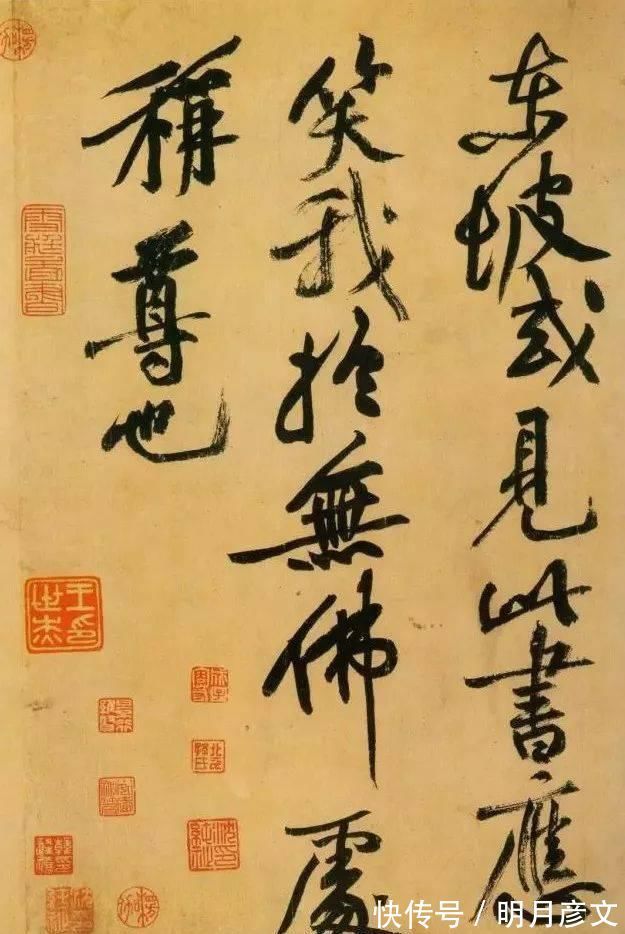 东坡或見此書應
笑我於無佛處
稱尊也
王氏世杰
快传号／明月彦文